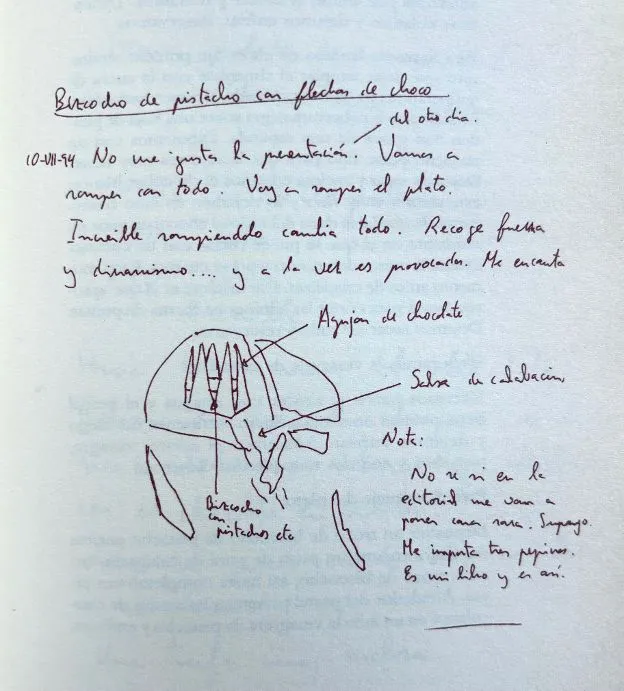 Bizcocho de pistacho con flechas de choco
del otro día.
10-VII-94 No me gusta la presentación. Vamos a
romper con todo. Voy a romper el plato.
Increíble rompiendolo cambia todo. Recoge fuerza
y dinamismo.... y a la vez es provocador. Me encanta
Aguijon de chocolate
Salsa de calabacin,
Bizcocho
con
pistachos etc
Nota:
No se si en la
editorial me van a
poner cara rara. Supongo.
Me importa tres pepinos.
Es mi libro y es así.